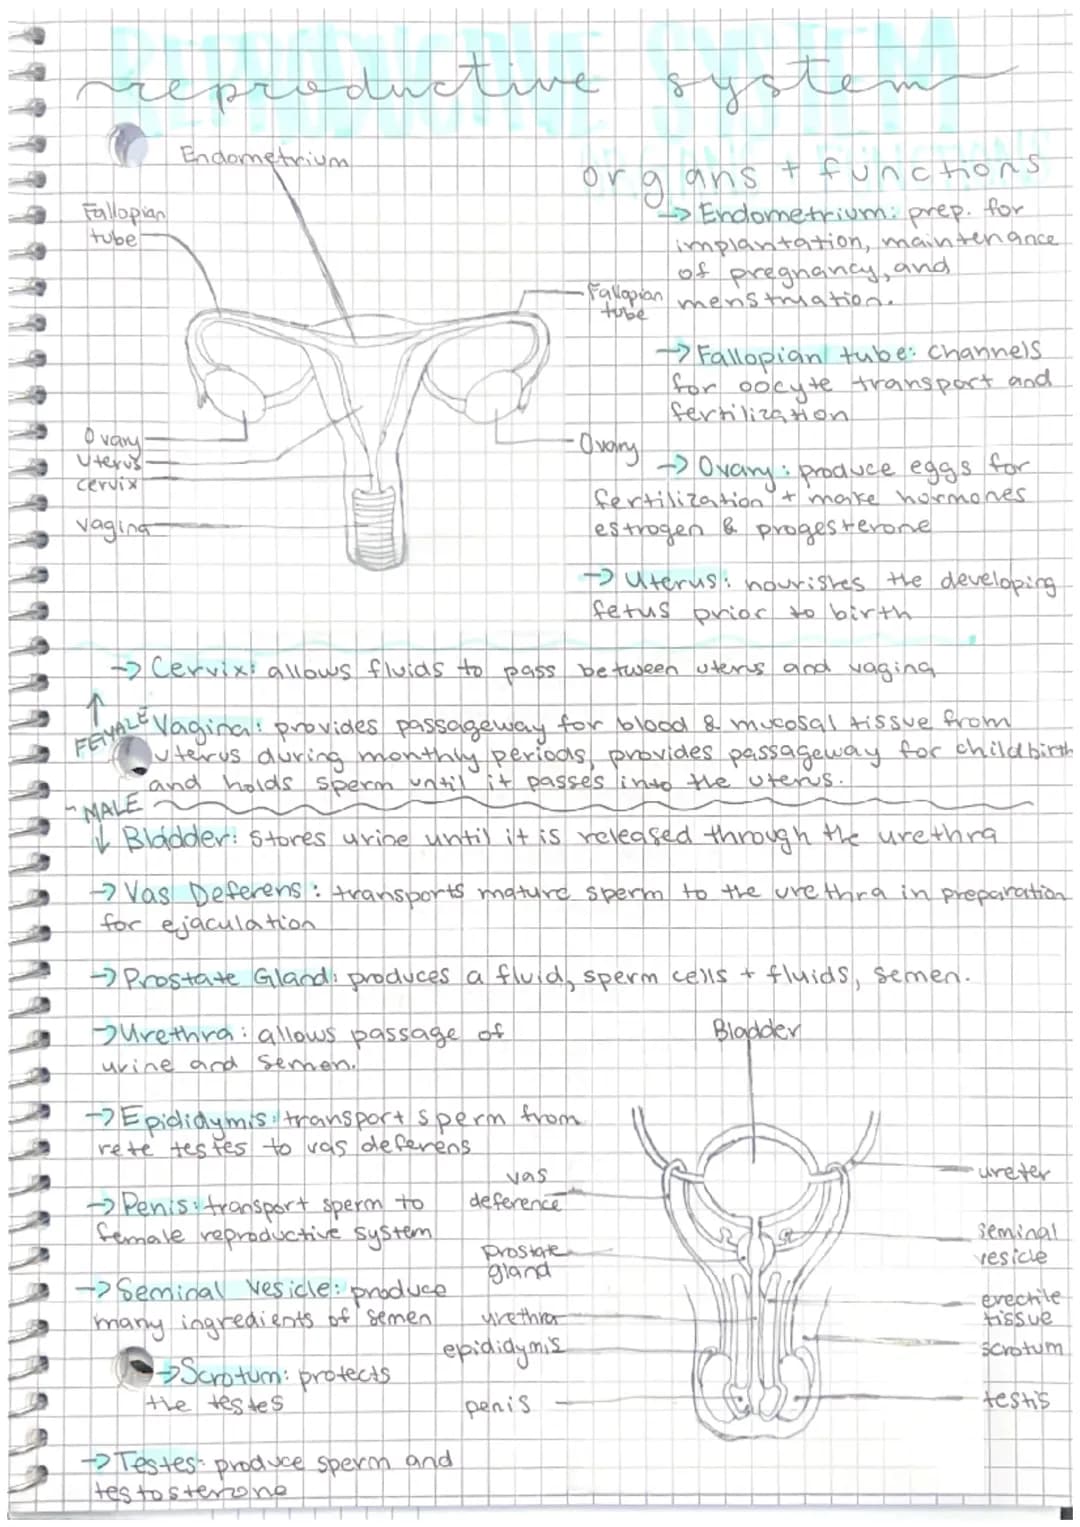 reproductive system
Endometrium
Fallopian
tube
Fallopian
tube
Ovary
Uterus
cervix
vagina
Ovary
organs + functions
→ Endometrium: prep. for
implantation, maintenance
of pregnancy, and
menstruation.
→ Fallopian tube: Channels
for oocyte transport and
fertilization
→ Ovary: produce eggs for
fertilization + make hormones
estrogen & progesterone
→ Uterus: nourishes the developing
fetus prior to birth
→ Cervix: allows fluids to pass between uterus and vagina
↑
FEMALE
Vagina: provides passageway for blood & mucosal tissue from
uterus during monthly periods, provides passageway for childbirth
and holds sperm until it passes into the uterus.
- MALE
↓ Bladder: Stores urine until it is released through the urethra
→ Vas Deferens: transports mature sperm to the urethra in preparation
for ejaculation
→ Prostate Gland: produces a fluid, sperm cells + fluids, semen.
→ Urethra: allows passage of
urine and semen.
→ Epididymis: transport sperm from
rete testes to vas deferens
→ Penis: transport sperm to
female reproductive system
→ Seminal Vesicle: produce
many ingredients of semen
→ Scrotum: protects
the testes
→ Testes: produce sperm and
testosterone
Bladder
vas
deference
prostate
gland
urethra
epididymis
penis
ureter
seminal
vesicle
erectile
tissue
scrotum
testis